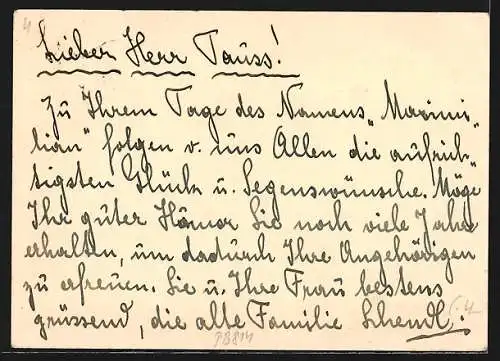 Lieber Herr Tauss!
Zu Ihrem Tage des Namens „Maximi-
lian" folgen v. uns Allen die aufrich-
tigsten Glück u. Segenswünsche. Möge
Ihr guter Humor Sie noch viele Jahre
erhalten, um dadurch Ihre Angehörigen
zu erfreuen. Sie u. Ihre Frau bestens
grüssend, die alte Familie Schendl.